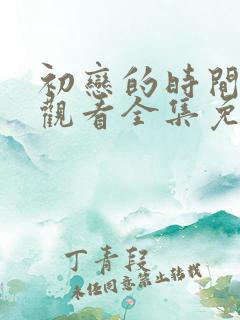 初戀的時間
觀看全集免
丁青段
未经同意禁止转载